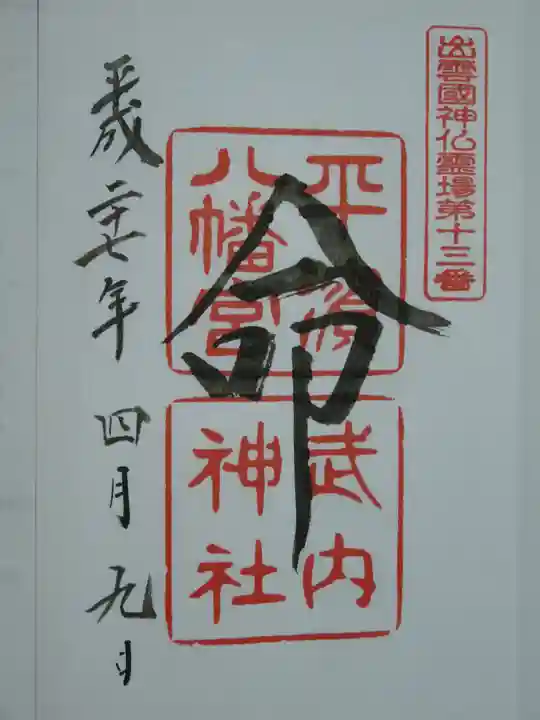 出雲國神仏霊場第十三番
平濱
八幡宮
命
武内
神社
平成二十七年 四月 九日